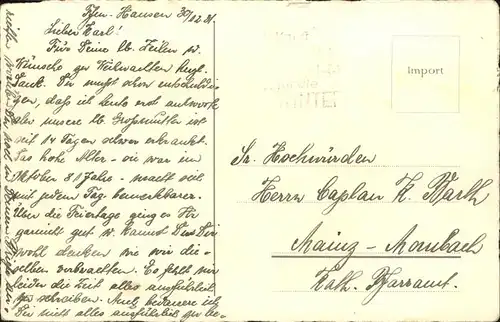 Ffm-Hausen 30/12 31.
Lieber Karl!
Für Deine lb. Zeilen u.
Wünsche zu Weihnachten herzl.
Dank. Du mußt schon entschuldi-
gen, daß ich heute erst antworte
aber unsere lb. Großmutter ist
seit 14 Tagen schwer erkrankt.
Das hohe Alter - sie war im
Oktober 81 Jahre - macht sich
mit jedem Tag bemerkbarer.
Über die Feiertage ging es ihr
garnicht gut u. kannst Du Dir
wohl denken wie wir die-
selben verbrachten. Es fehlt mir
leider die Zeit alles ausführlich
zu schreiben. Auch bedauere ich
Dir nicht alles ausführlich zu be-
Import
Sr. Hochwürden
Herrn Caplan K. Barth
Mainz-Mombach
Kath. Pfarramt.